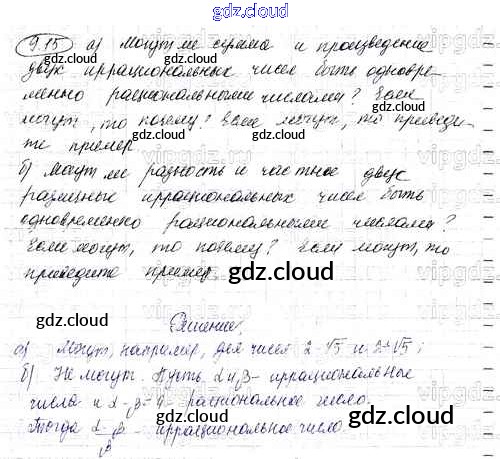 gdz.cloud
9.15 а) Могут ли сумма и произведение
двух иррациональных чисел быть одновре-
менно рациональными числами? Если
могут, то почему? Если могут, то приведи-
те пример.
б) Могут ли разность и частное двух
различных иррациональных чисел быть
одновременно рациональными числами?
Если могут, то почему? Если могут, то
приведите пример.
gdz.cloud
Решение.
а) Могут, например, для чисел 2-√5 и 2+√5;
б) Не могут. Пусть α и β - иррациональные
числа и α - β = q - рациональное число.
Тогда α/β - иррациональное число.
gdz.cloud